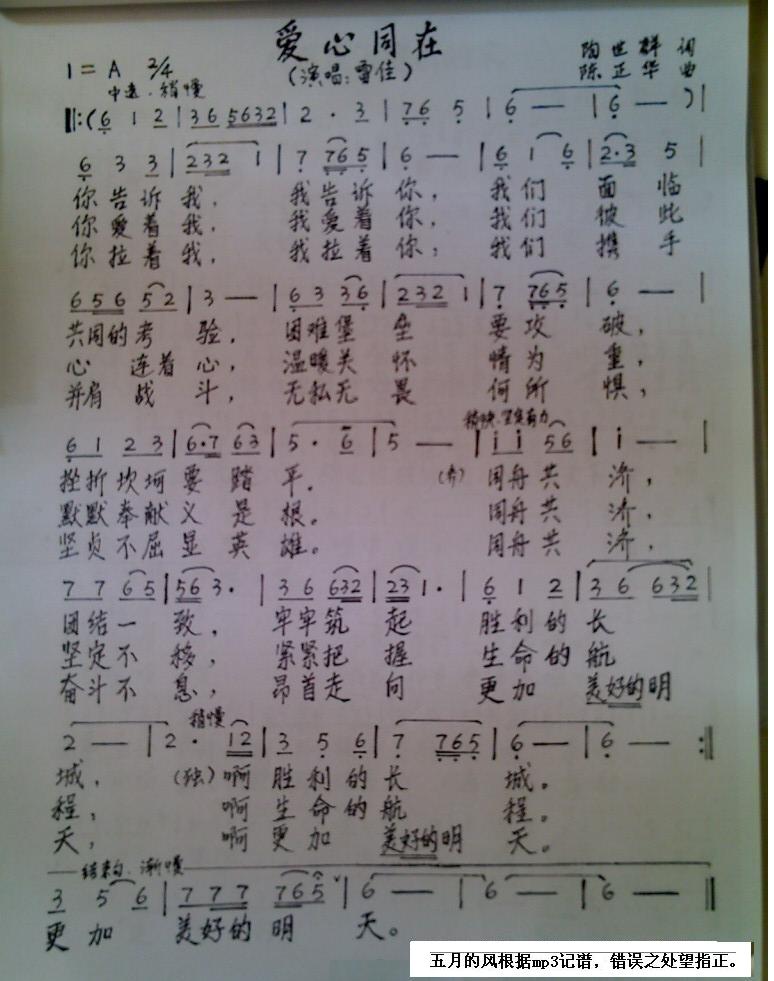 爱心同在
陶世群 词
1=A 2/4 (演唱:雷佳) 陈正华 曲
中速.稍慢
‖:(6 1 2 | 36 5632 | 2 · 3 | 76 5 | 6 — | 6 — ) |
6 3 3 | 232 1 | 7 76 5 | 6 — | 6 1 6 | 2·3 5 |
你告诉我, 我告诉你, 我们 面临
你爱着我, 我爱着你, 我们 彼此
你拉着我, 我拉着你, 我们 携手
656 52 | 3 — | 6 3 36 | 232 1 | 7 765 | 6 — |
共同的考 验, 困难堡 垒 要攻 破,
心 连着心, 温暖关 怀 情为 重,
并肩 战 斗, 无私无 畏 何所 惧,
稍快.坚定有力
61 23 | 6·7 63 | 5 · 6 | 5 — | i i 56 | i — |
挫折坎坷要 踏 平。 (齐) 同舟共 济,
默默奉献义 是 根。 同舟共 济,
坚贞不屈显 英 雄。 同舟共 济,
7 7 65 | 56 3 · | 3 6 632 | 23 1 · | 6 1 2 | 3 6 632 |
团结一 致, 牢牢筑 起 胜利的 长
坚定不 移, 紧紧把 握 生命的 航
奋斗不 息, 昂首走 向 更加 美好的明
稍慢
2 — | 2 · 12 | 3 5 6 | 7 765 | 6 — | 6 — :‖
城, (独)啊 胜利的长 城。
程, 啊 生命的航 程。
天, 啊 更加 美好的明 天。
结束句.渐慢
3 5 6 | 7 7 7 765 ˅ | 6 — | 6 — | 6 — ‖
更加 美好的 明 天。
五月的风根据mp3记谱，错误之处望指正。